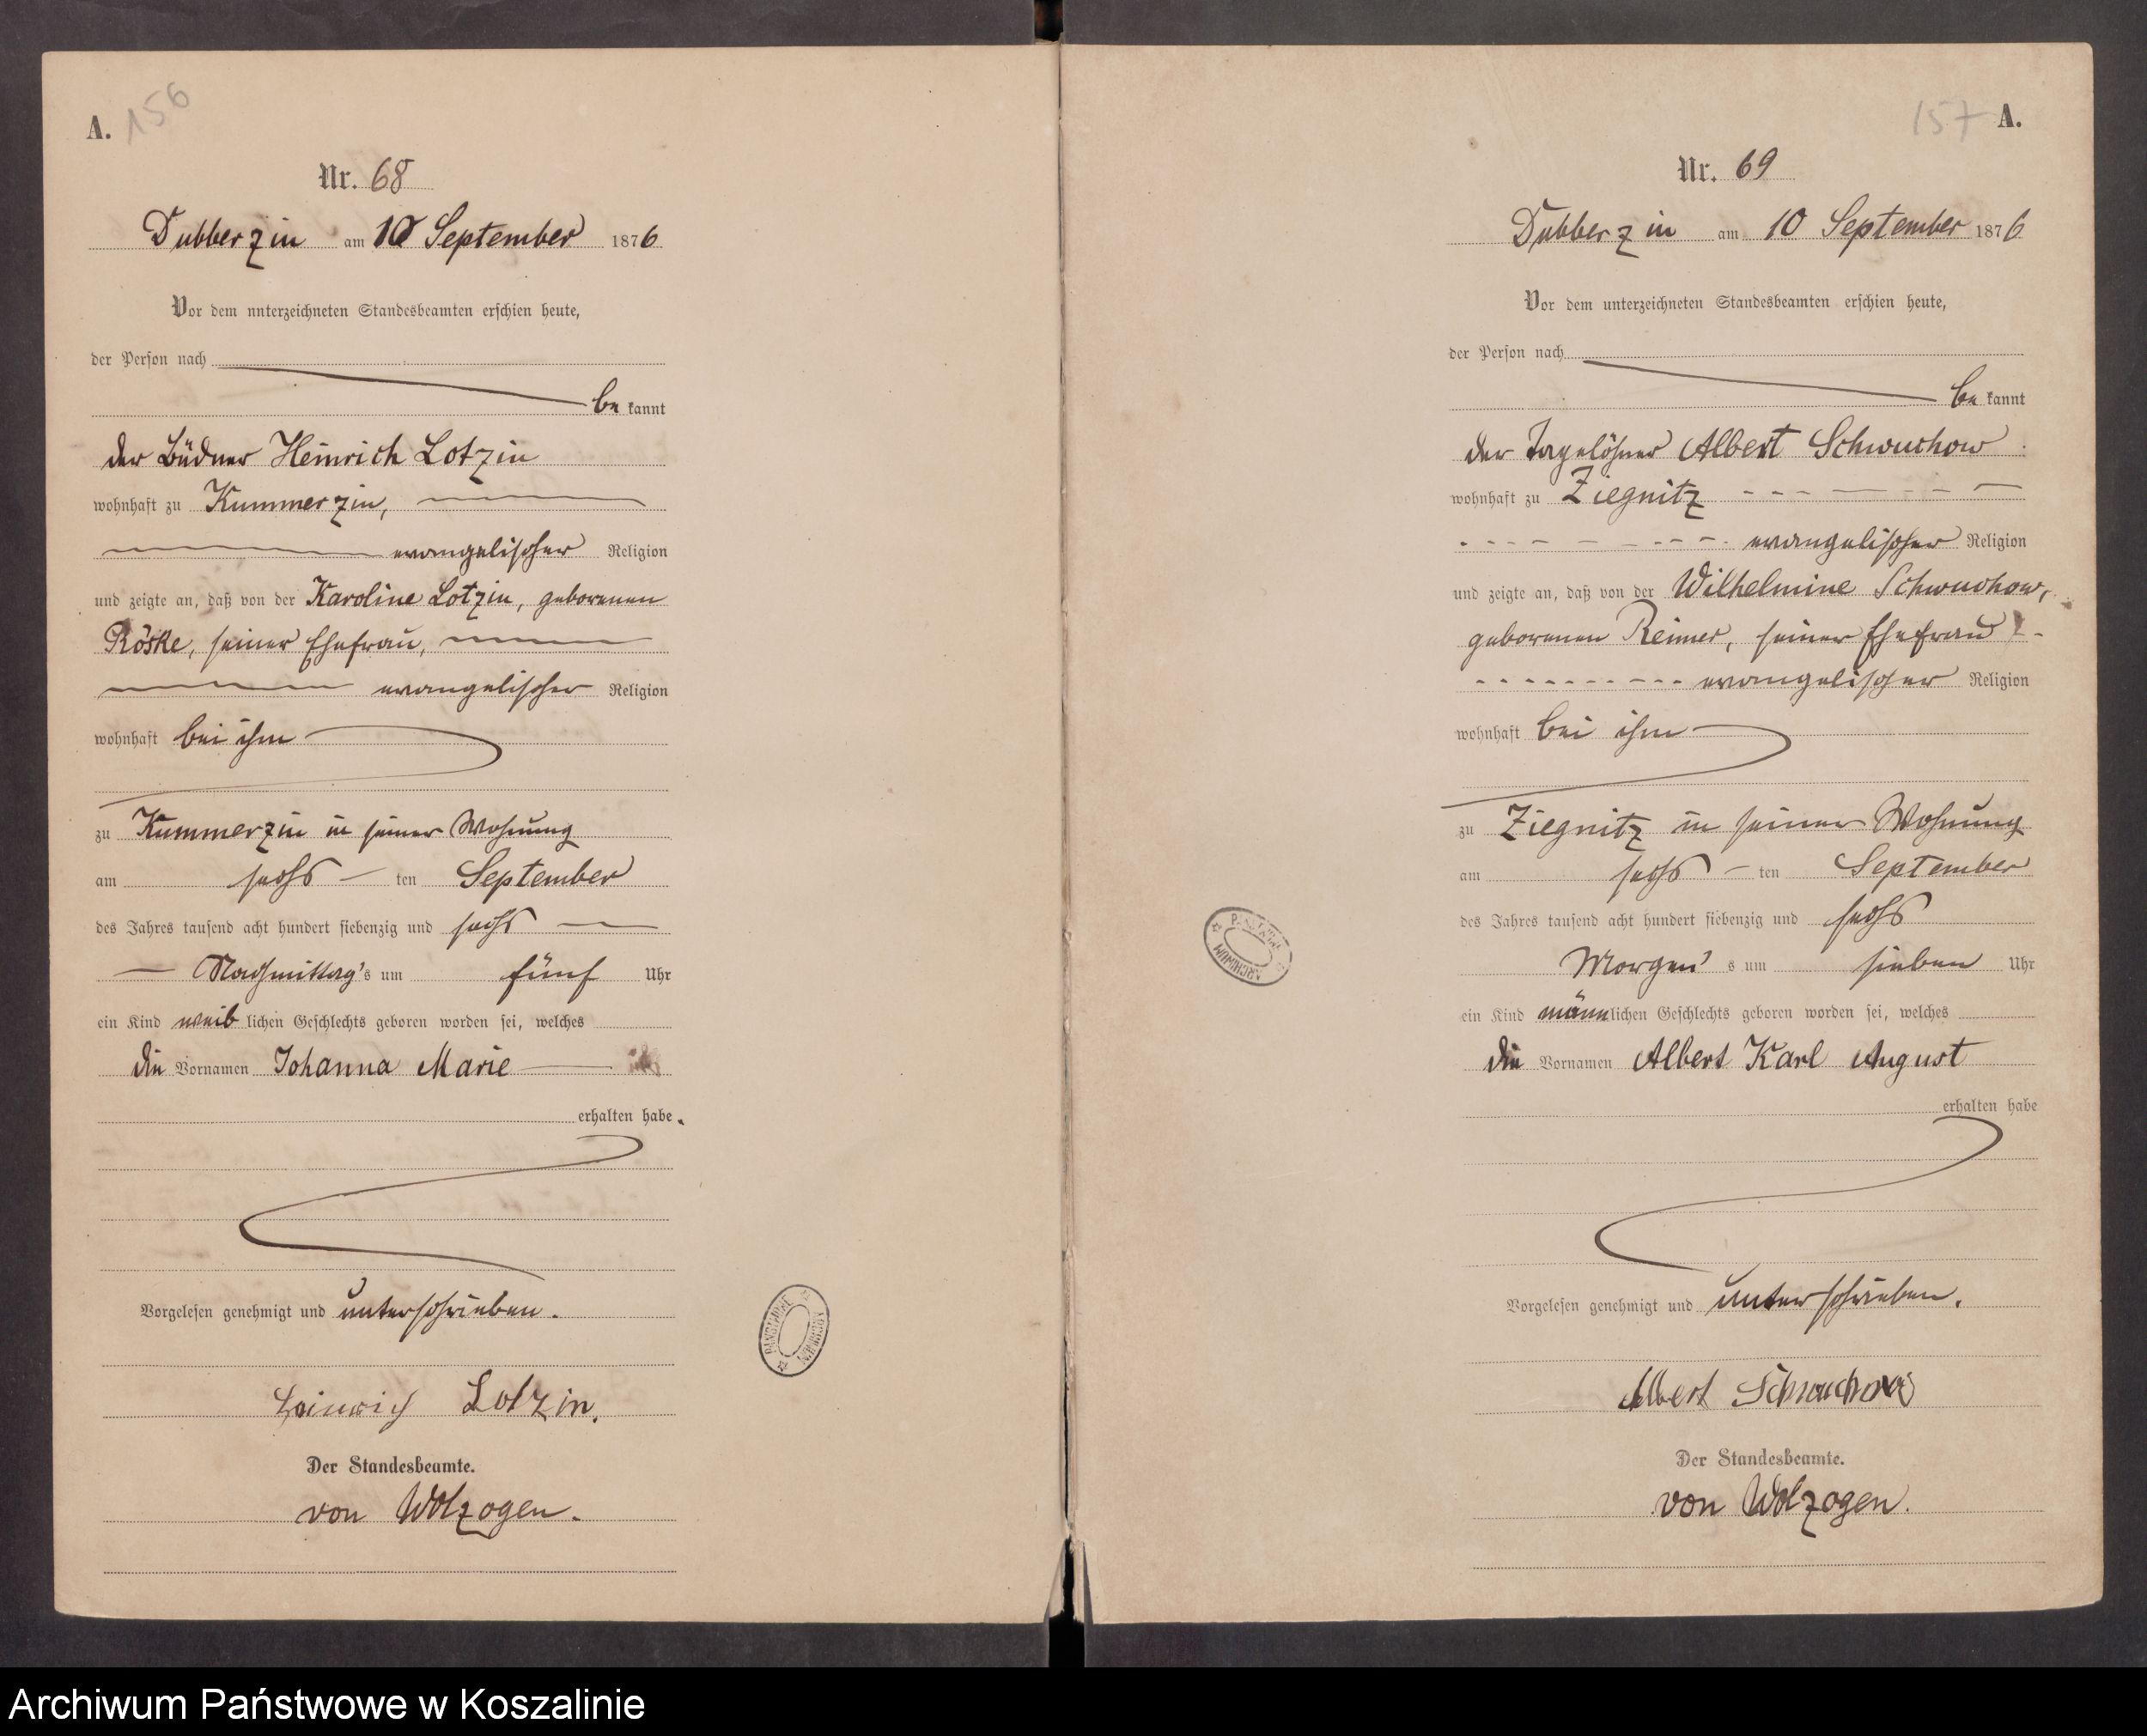 A.
156
Nr. 68
Dubberzin am 10 September 1876
Vor dem unterzeichneten Standesbeamten erschien heute,
der Person nach
be kannt
der Büdner Heinrich Lotzin
wohnhaft zu Kummerzin,
evangelischer Religion
und zeigte an, daß von der Karoline Lotzin, geborenen
Röske, seiner Ehefrau,
evangelischer Religion
wohnhaft bei ihm
zu Kummerzin in seiner Wohnung
am sechs ten September
des Jahres tausend acht hundert siebenzig und sechs
Nachmittag's um fünf Uhr
ein Kind weib lichen Geschlechts geboren worden sei, welches
die Vornamen Johanna Marie
erhalten habe.
Vorgelesen genehmigt und unterschrieben.
Heinrich Lotzin.
Der Standesbeamte.
von Wolzogen.
157
A.
Nr. 69
Dubberzin am 10 September 1876
Vor dem unterzeichneten Standesbeamten erschien heute,
der Person nach
be kannt
der Tagelöhner Albert Schwuchow
wohnhaft zu Ziegnitz
evangelischer Religion
und zeigte an, daß von der Wilhelmine Schwuchow,
geborenen Reimer, seiner Ehefrau
evangelischer Religion
wohnhaft bei ihm
zu Ziegnitz in seiner Wohnung
am sechs ten September
des Jahres tausend acht hundert siebenzig und sechs
Morgen's um sieben Uhr
ein Kind männlichen Geschlechts geboren worden sei, welches
die Vornamen Albert Karl August
erhalten habe
Vorgelesen genehmigt und unterschrieben.
Albert Schwuchow
Der Standesbeamte.
von Wolzogen.
Archiwum Państwowe w Koszalinie